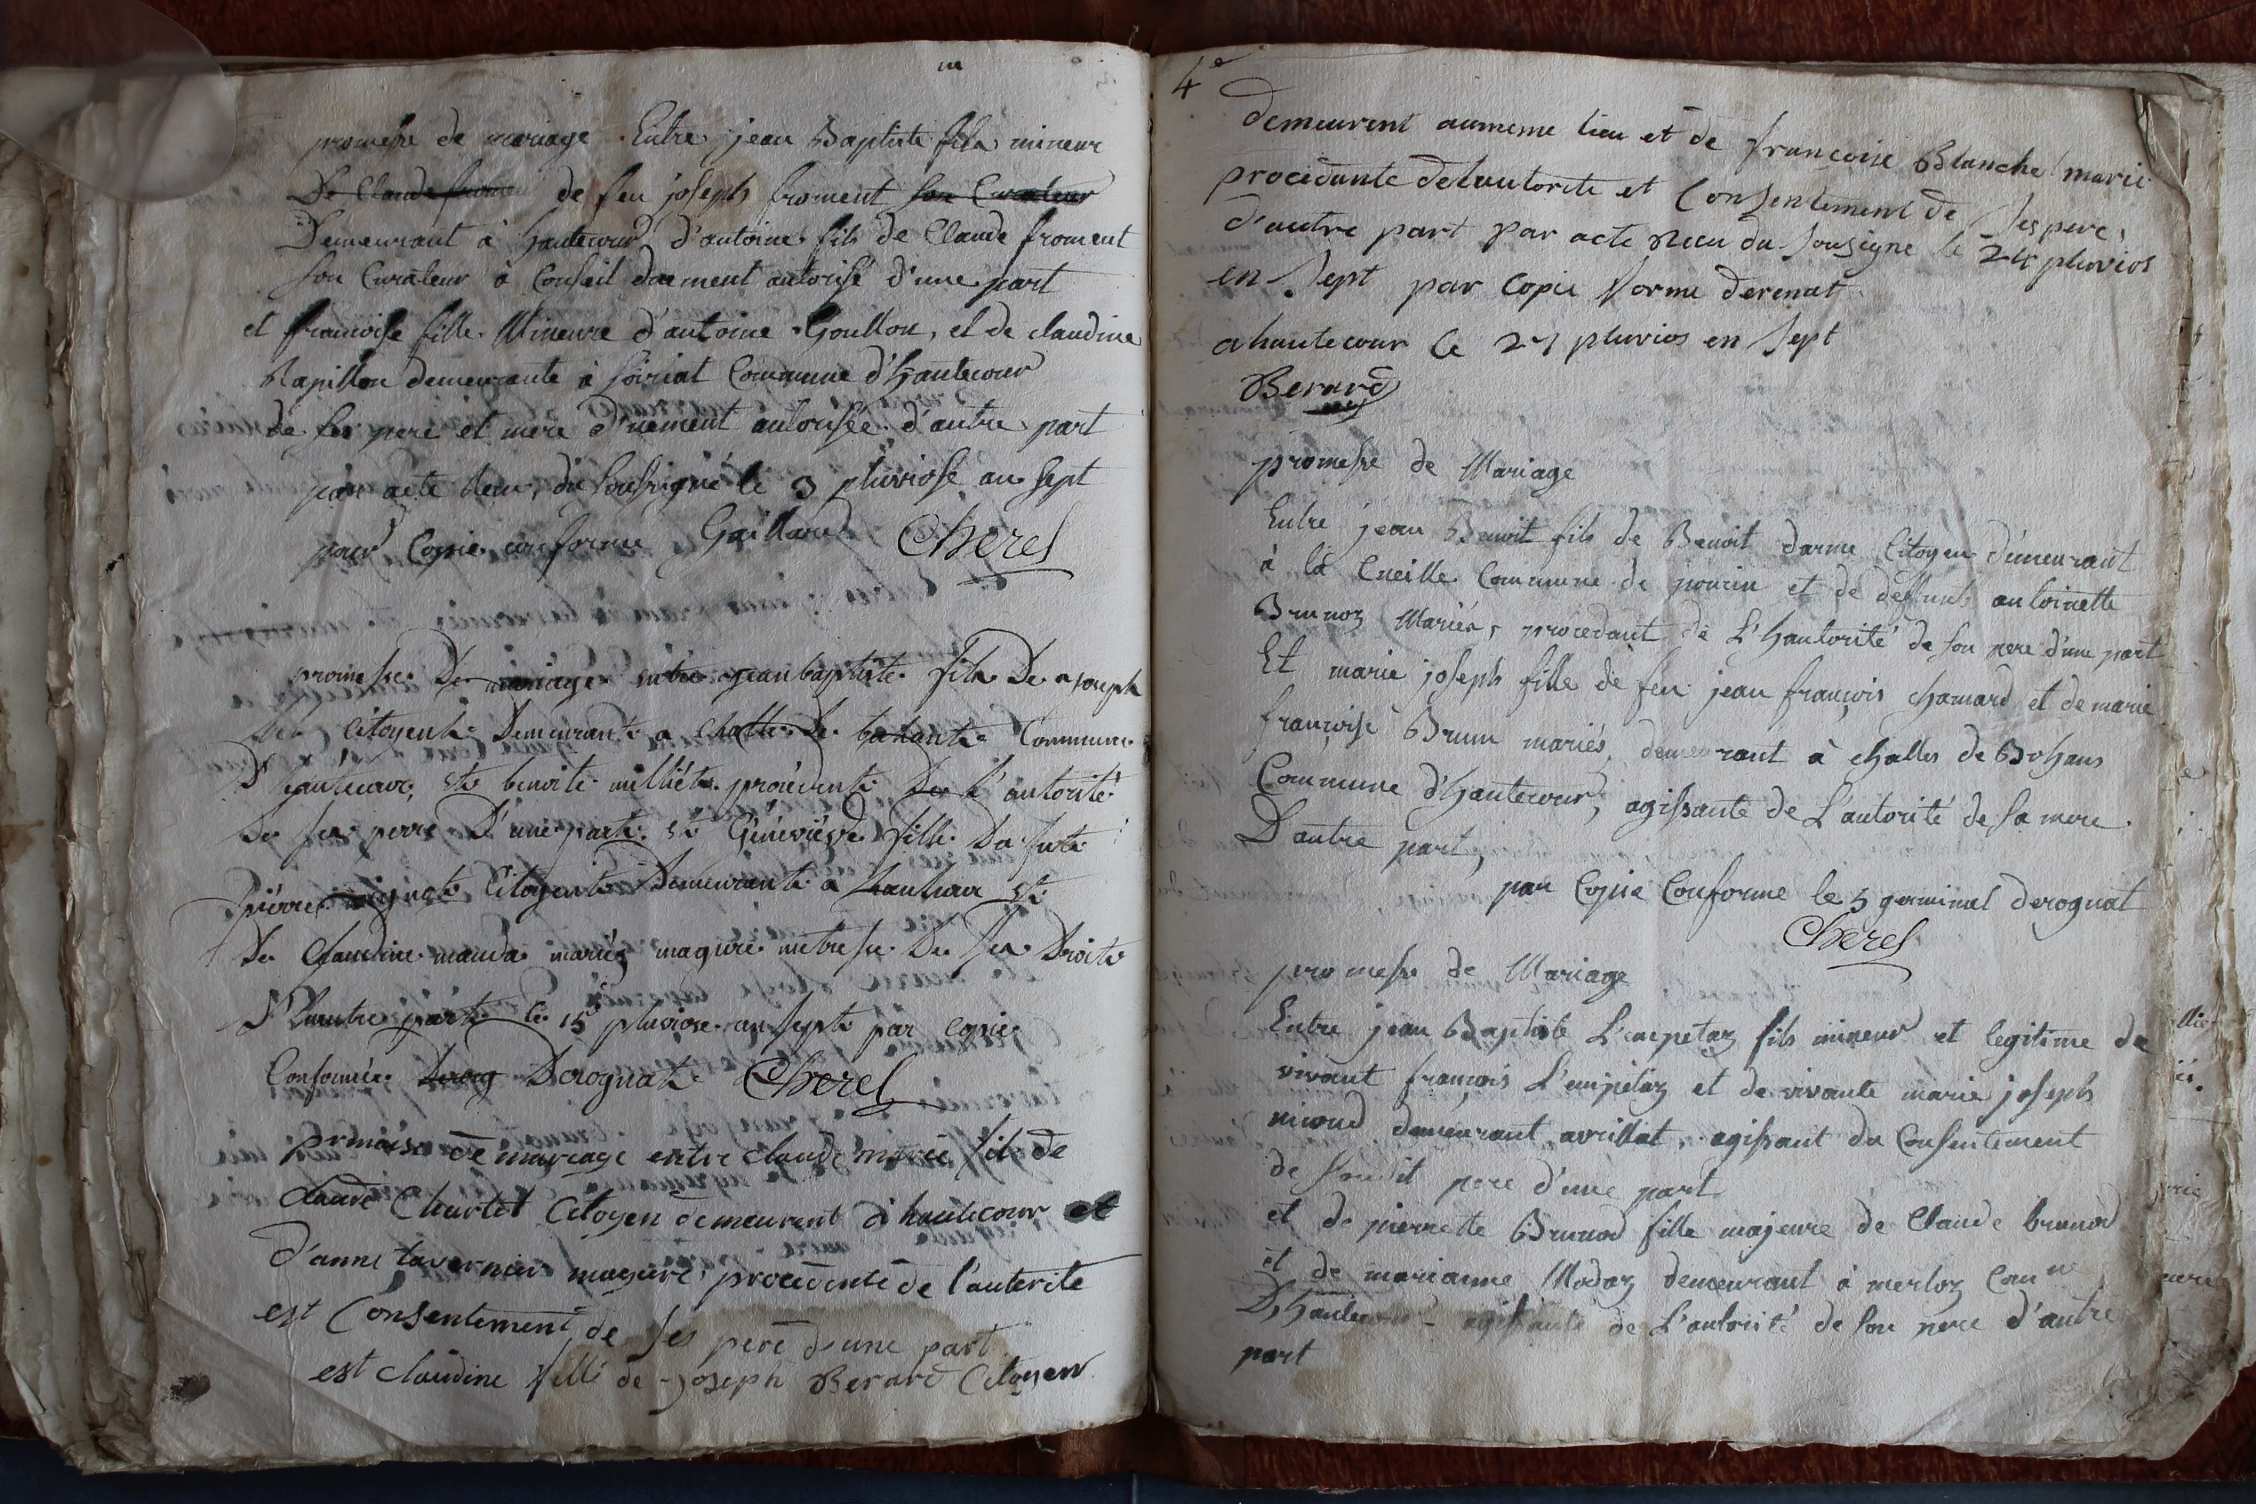 promesse de mariage Entre jean Baptiste fils mineur
De Claude de feu joseph froment son Curateur
Demeurant à hautecour d'antoine fils de Claude froment
son Curateur à Conseil duement autorisé d'une part
et francoise fille Mineure d'antoine Goullon, et de claudine
Rapillon demeurante à soiriat Commune d'Hautecour
de ses pere et mere d'uement autorisée d'autre part
par acte Recu, du soussigné le 3 pluviose an sept
pour Copie conforme Gaillard Cherel
promesse De mariage entre jean baptiste fils De joseph
citoyent Demeurant a Challe De bohant Commune
D'hautecour, et benoite milliét procédent De l'autorité
De ses perre D'une part et Généviéve fille Da
piérre citoyent Demeurant a hautcour et
De Claudine mariéz magure metresse De ses Droits
D'lautre part le 15 pluviose an sept par copie
Conformée Derog Derognat Cherel
promaisse de mareage entre claude marie fils de
claude Churlet Citoyen demeurent à hautecour et
d'anne tavernier mageure procedente de l'auterite
est Consentement de ses pere d'une part
est claudine fille de Joseph Berard Citoyen
4e
demeurent aumeme lieu et de francoise Blanche marie
procedante delautorite et Consentement de ses pere,
d'autre part par acte Recu du sousigne le 24 pluvios
en sept par copie forme derenat
ahautecour le 27 pluvios en sept
Berard
promesse de Mariage
Entre jean Benoit fils de Benoit darme Citoyen démeurant
à la Cueille Commune de poncin et de deffunte antoinette
Brunoz Mariés, procedant de L'hautorité de son pere d'une part
Et marie joseph fille de feu jean françois chamard et de marie
françoise Brun mariés, demeurant à challes de Bohans
Commune d'hautecour, agissante de L'autorité de sa mere
D'autre part,
par Copie Conforme le 5 germinal derognat
Cherel
promesse de Mariage
Entre jean Baptiste L'empetaz fils mineur et legitime de
vivant françois L'empétaz et de vivante marie joseph
nicoud demeurant avrillat, agissant du Consentement
de sondit pere d'une part
et de pierrette Brunod fille majeure de Claude brunod
et de marianne Modaz demeurant à merloz Conne
D'hautecour agissante de L'autorité de son pere d'autre
part